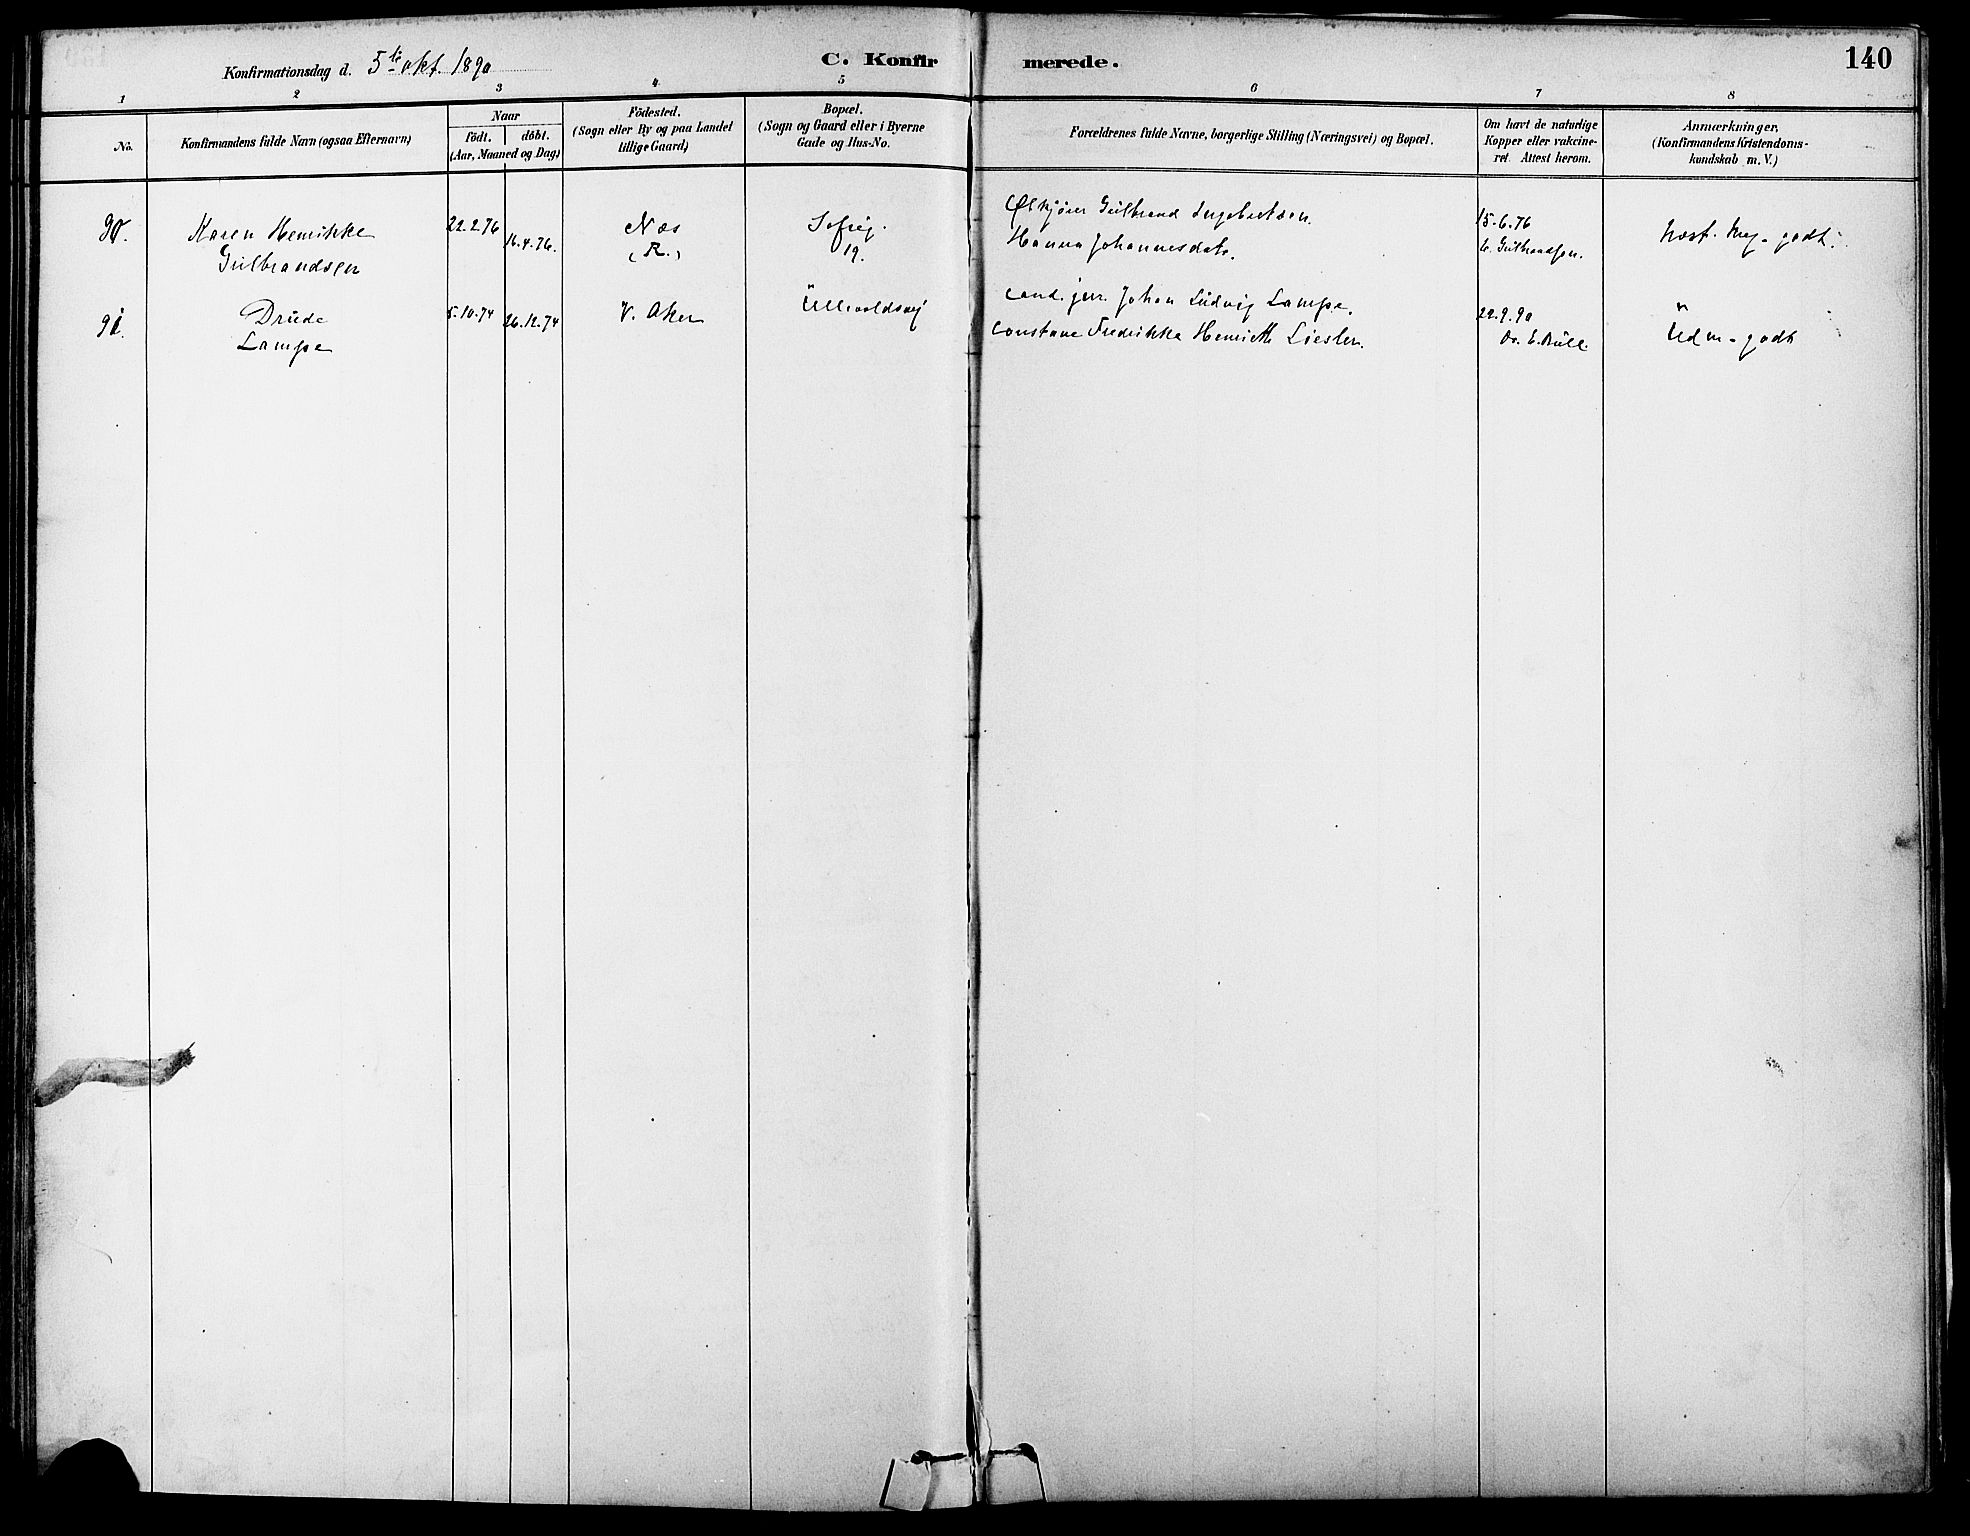 Konfirmationsdag d. 5te okt. 1890
C. Konfirmerede.
140
1 2 3 4 5 6 7 8
No.
Konfirmandens fulde Navn (ogsaa Efternavn)
Naar
födt. döbt.
(Aar, Maaned og Dag)
Födested.
(Sogn eller By og paa Landet
tillige Gaard)
Bopæl.
(Sogn og Gaard eller i Byerne
Gade og Hus-No.
Forældrenes fulde Navne, borgerlige Stilling (Næringsvei) og Bopæl.
Om havt de naturlige
Kopper eller vakcine-
ret. Attest herom.
Anmærkninger,
(Konfirmandens Kristendoms-
kundskab m. V.)
90.
Karen Henrikke
Gulbrandsen
22.2.76
16.4.76.
Næs
(R.)
Sofieg.
19.
Ølkjører Gulbrand Ingebretsen.
Hanna Johannesdatr.
15.6.76
Gulbrandsen.
næst. meg. godt.
91.
Drude
Lampe
5.10.74
26.12.74
V. Aker
Ullevoldsvej
cand. jur. Johan Ludvig Lampe.
Constance Fredrikke Henriette
22.9.90
Dr. E. Bull.
Udm. godt